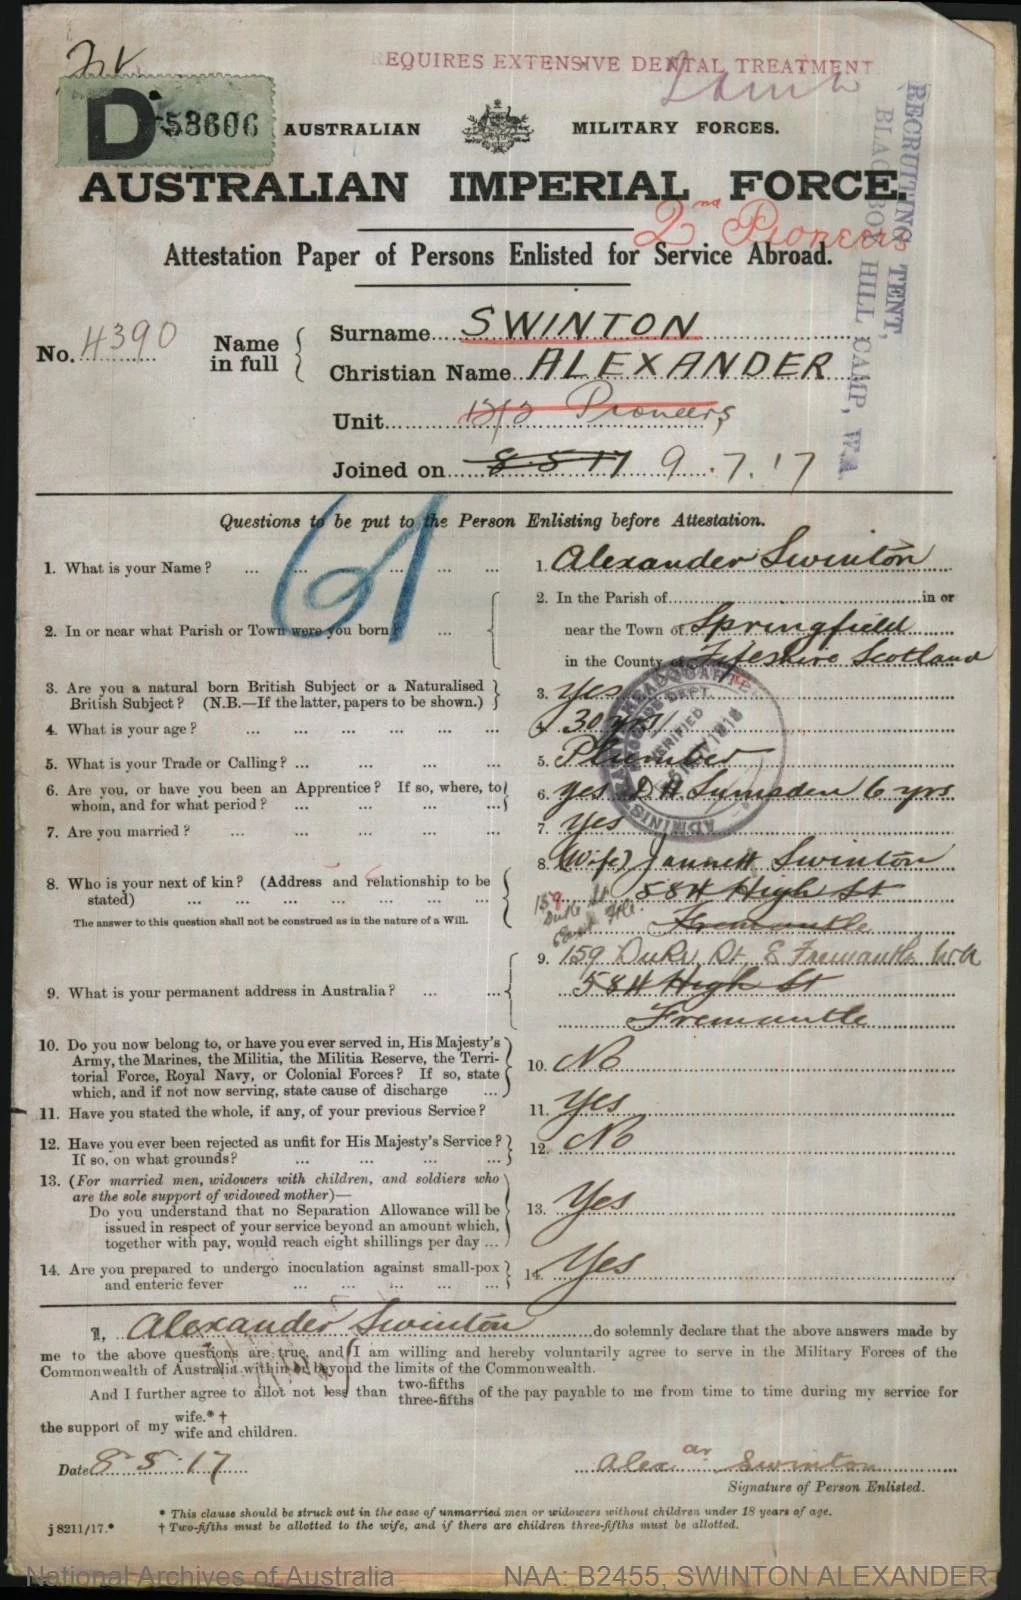 REQUIRES EXTENSIVE DENTAL TREATMENT
D 58606
AUSTRALIAN MILITARY FORCES.
AUSTRALIAN IMPERIAL FORCE.
2nd Pioneers
RECRUITING TENT,
BLACKBOY HILL CAMP, W.A.
Attestation Paper of Persons Enlisted for Service Abroad.
No. 4390
Name in full
Surname SWINTON
Christian Name ALEXANDER
Unit 12/2 Pioneers
Joined on 8.5.17 9.7.17
Questions to be put to the Person Enlisting before Attestation.
61
1. What is your Name? ... ... ... ... ... 1. Alexander Swinton
2. In or near what Parish or Town were you born ... 2. In the Parish of in or
near the Town of Springfield
in the County of Fifeshire Scotland
3. Are you a natural born British Subject or a Naturalised
British Subject? (N.B.—If the latter, papers to be shown.) 3. Yes
4. What is your age? ... ... ... ... ... 4. 30 yrs
5. What is your Trade or Calling? ... ... ... ... 5. Plumber
6. Are you, or have you been an Apprentice? If so, where, to
whom, and for what period? ... ... ... ... 6. yes D H Lumsden 6 yrs
7. Are you married? ... ... ... ... 7. Yes
8. Who is your next of kin? (Address and relationship to be
stated) ... ... ... ... ... ...
The answer to this question shall not be construed as in the nature of a Will.
8. (Wife) Jannett Swinton
584 High St
Fremantle
159
Duke St
East Fle.
9. What is your permanent address in Australia? ... ...
9. 159 Duke St, E Fremantle W.A
584 High St
Fremantle
10. Do you now belong to, or have you ever served in, His Majesty's
Army, the Marines, the Militia, the Militia Reserve, the Terri-
torial Force, Royal Navy, or Colonial Forces? If so, state
which, and if not now serving, state cause of discharge ... 10. No
11. Have you stated the whole, if any, of your previous Service? 11. Yes
12. Have you ever been rejected as unfit for His Majesty's Service?
If so, on what grounds? ... ... ... ... 12. No
13. (For married men, widowers with children, and soldiers who
are the sole support of widowed mother)—
Do you understand that no Separation Allowance will be
issued in respect of your service beyond an amount which,
together with pay, would reach eight shillings per day ... 13. Yes
14. Are you prepared to undergo inoculation against small-pox
and enteric fever ... ... ... ... 14. Yes
HEADQUARTERS
VERIFIED
ADMINIS
I, Alexander Swinton do solemnly declare that the above answers made by
me to the above questions are true, and I am willing and hereby voluntarily agree to serve in the Military Forces of the
Commonwealth of Australia within or beyond the limits of the Commonwealth.
And I further agree to allot not less than two-fifths three-fifths of the pay payable to me from time to time during my service for
the support of my wife.* † wife and children.
Date 8.5.17 Alexar Swinton
Signature of Person Enlisted.
* This clause should be struck out in the case of unmarried men or widowers without children under 18 years of age.
j 8211/17.* † Two-fifths must be allotted to the wife, and if there are children three-fifths must be allotted.
National Archives of Australia NAA: B2455, SWINTON ALEXANDER